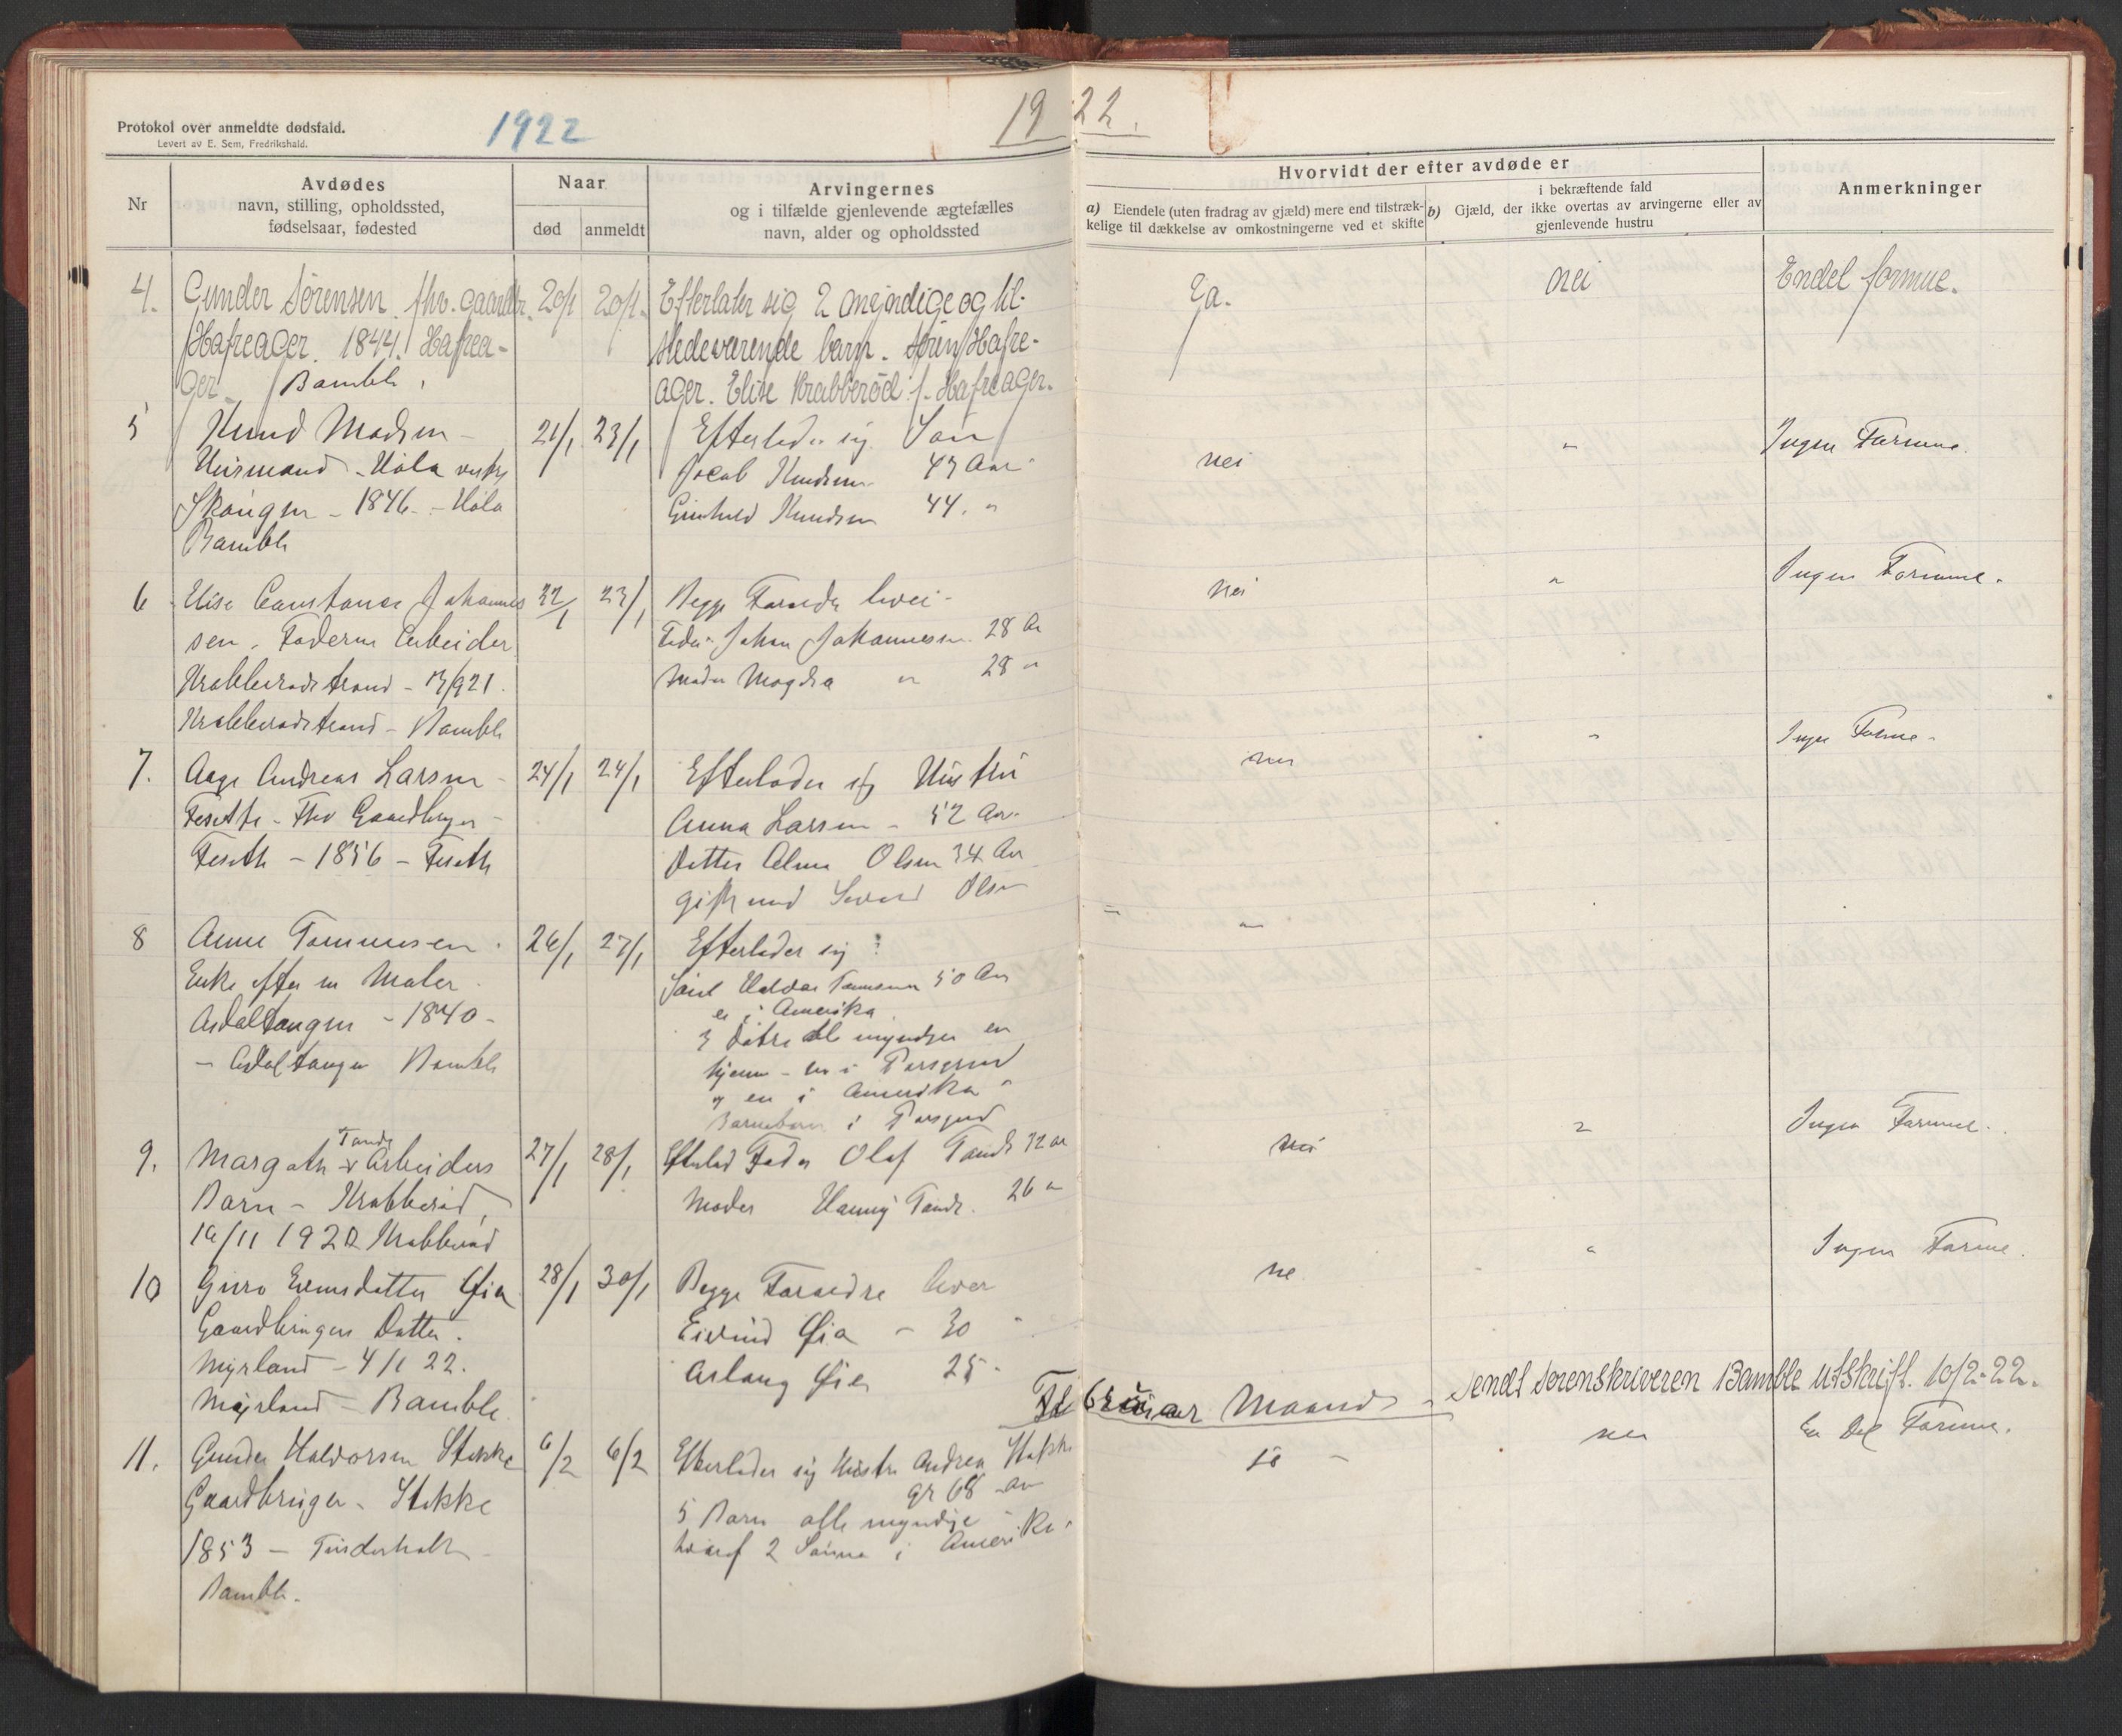 Protokol over anmeldte dødsfald.
Levert av E. Sem, Fredrikshald.
1922
1922.
Nr
Avdødes
navn, stilling, opholdssted,
fødselsaar, fødested
Naar
død
anmeldt
Arvingernes
og i tilfælde gjenlevende ægtefælles
navn, alder og opholdssted
Hvorvidt der efter avdøde er
a) Eiendele (uten fradrag av gjæld) mere end tilstræk-
kelige til dækkelse av omkostningerne ved et skifte
i bekræftende fald
b) Gjæld, der ikke overtas av arvingerne eller av
gjenlevende hustru
Anmerkninger
4. Gunder Sørensen. fhv. gaardbr. 20/1 20/1. Efterlater sig 2 myndige og til- Ja. Nei Endel formue.
Hafreager. 1844. Hafrea- stedeværende barn. Søren Hafre-
ger. Bamble. ager. Elise Krabberød f. Hafreager.
5 Knud Madsen 21/1 23/1 Efterlader sig Søn nei " Ingen Formue.
Husmand - Hola
Jacob Knudsen 47 Aar
Skougen - 1846 - Hola Gunhild Knudsen 44. "
Bamble
6 Elise Constance Johannes 22/1 23/1 Begge Foreldre lever nei " Ingen Formue.
sen. Faderen Arbeider Fader Johan Johannessen 28 Ar
Krabberødstrand - /921. Moder Magda " 28 "
Krabberødstrand - Bamble
7. Aage Andreas Larsen 24/1 24/1 Efterlader sig Hustru nei " Ingen Formue.
Feseth - Fhv Gaardbruger - Anna Larsen - 52 Aar.
Feseth - 1856 - Feseth Datter Alma Olsen 34 Ar
gift med Olsen
8 Anne Tommesen. 26/1 27/1 Efterlader sig: "
Enke efter en Maler.
Søn Halvor Tommesen 50 Ar
er i Amerika
Asdaltangen - 1840 -
3 Døtre alle myndige en
- Asdaltangen Bamble
hjemme - en i Porsgrund
og en i Amerika
Barnebarn i Porsgrund
9. Margoth Tande Arbeiders 27/1 28/1 Efterlad Fader Olaf Tande 32 ar nei " Ingen Formue.
Barn - Krabberød, Moder Hanny Tande. 26 "
/11 192 Krabberød
10 Guro Evensdatter Øia 28/1 30/1 Begge Foraeldre lever nei " Ingen Formue.
Gaardbrugers Datter. Eivind Øia - 30 "
Myrland - 4/1 22. Aslaug Øia 25 "
Myrland - Bamble.
Februar Maaned - Sendt Sorenskriveren Bamble Utskrift. 10/2-22.
11. Gunder Halvorsen Stokke 6/2 6/2 Efterlader sig Hustru Andrea Stokke Ja - nei En Del Formue.
68 ar
Gaardbruger - Stokke
5 Barn alle myndige
1853 - Tinderholt - hvoraf 2 Sønner i Amerika
Bamble.